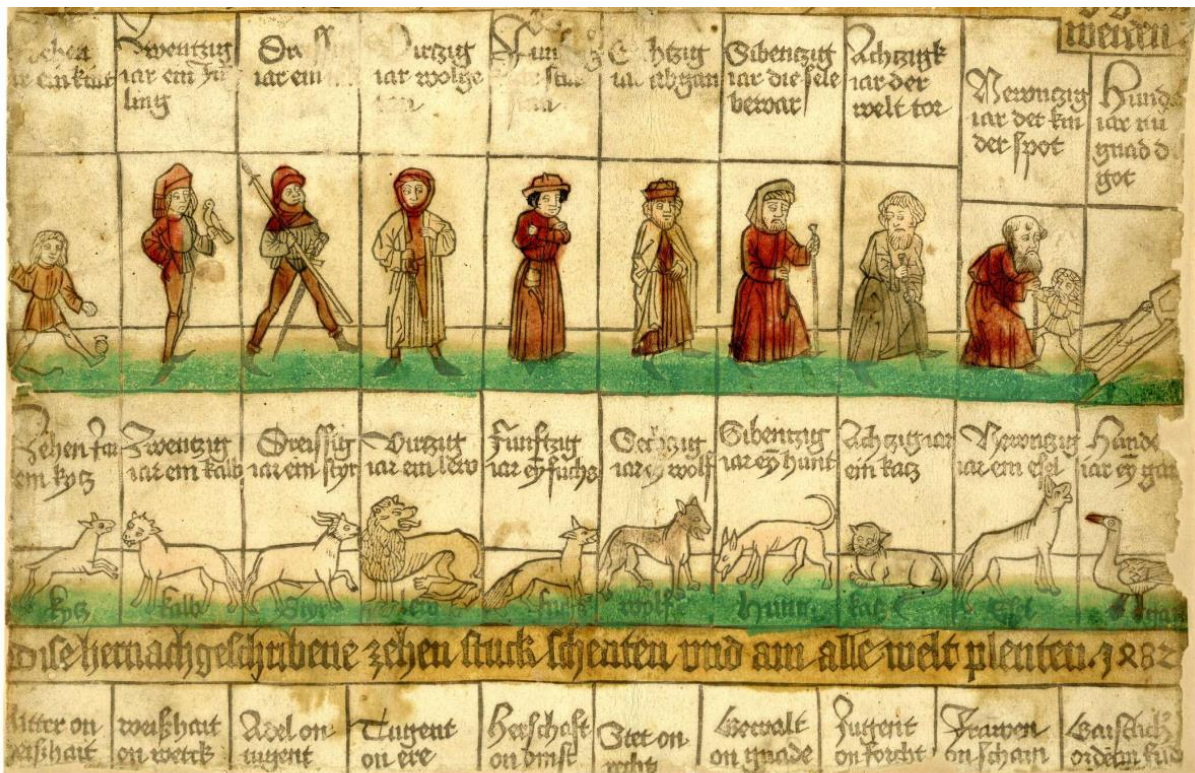 werden
Zwentzig
iar ein Jü
ling
iar ein
Virtzig
iar wolge
Sibentzig
iar die sele
bewar
Achtzigk
iar der
welt tor
Newntzig
iar der kin
der spot
Hunde
iar nu
gnad d
got
Zehen Jar
ein kytz
Zwentzig
iar ein kalb
Dreissig
iar ein styr
Virtzig
iar ein lew
Fünftzig
iar eÿ fuchs
Sechtzig
iar eÿ wolf
Sibentzig
iar eÿ hunt
Achtzig iar
ein katz
Newntzig
iar ein esel
Hunde
iar eÿ gan
kytz
kalb
Styr
lew
fuchs
wolff
Hunt
katz
Esel
Dise hernachgeschribene zehen stuck schenten vnd am alle welt plenten. 1482
Alter on
weißhait
weißhait
on werck
Adel on
tugent
Tugent
on ere
Herschaft
on dinst
Stet on
recht
Gewalt
on gnade
Jugent
on forcht
Frawen
on scham
Gaistlich
orden on frid